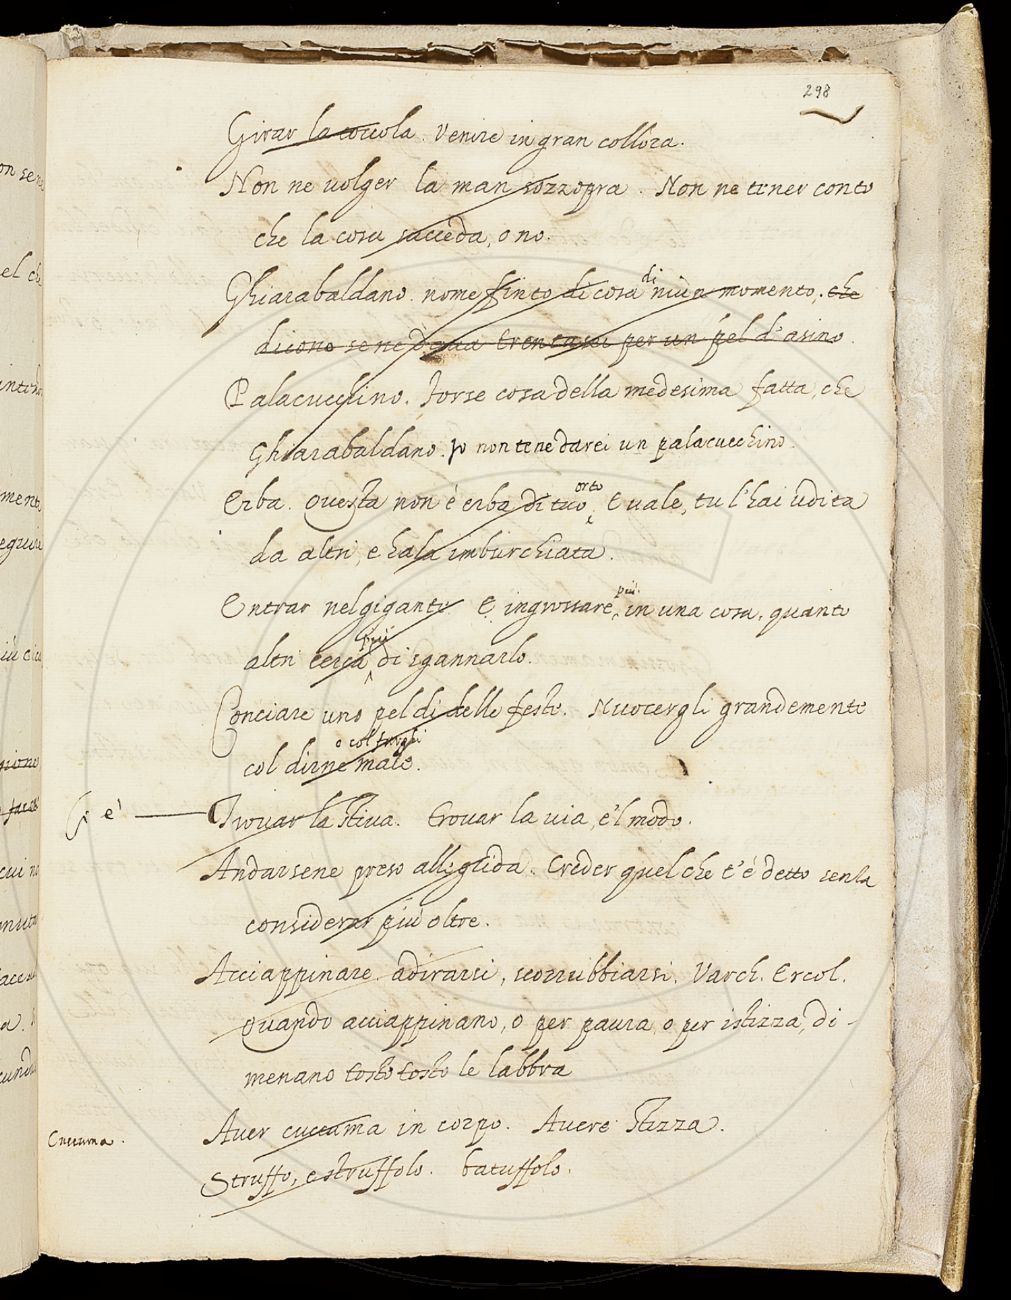 298
Girar la coccola. Venire in gran collora.
Non ne volger la man sozzopra. Non ne tener conto
che la cosa succeda, o no.
Ghiarabaldano. nome finto di cosa di niun momento, che
dicono se ne dava trentasei per un pel d'asino.
Palacucchino. forse cosa della medesima fatta, che
Ghiarabaldano. Jo non te ne darei un palacucchino.
Erba. Questa non è erba di tuo orto. E vale, tu l'hai udita
da altri, e hala imburchiata.
Entrar nel gigante E ingrossare più in una cosa, quanto
altri cerca più di sgannarlo.
Conciare uno pel dì delle feste. Nuocergli grandemente
col dirne male. o col fargli
Si è Trovar la stiva. trovar la via, e'l modo.
Andarsene preso alle grida. Creder quel che t'è detto senza
considerar più oltre.
Acciappinare adirarsi, scorrubbiarsi. Varch. Ercol.
Quando acciappinano, o per paura, o per istizza, di-
menano tosto tosto le labbra
Cuccuma. Aver cuccuma in corpo. Avere stizza.
Struffo, e struffolo. batuffolo.